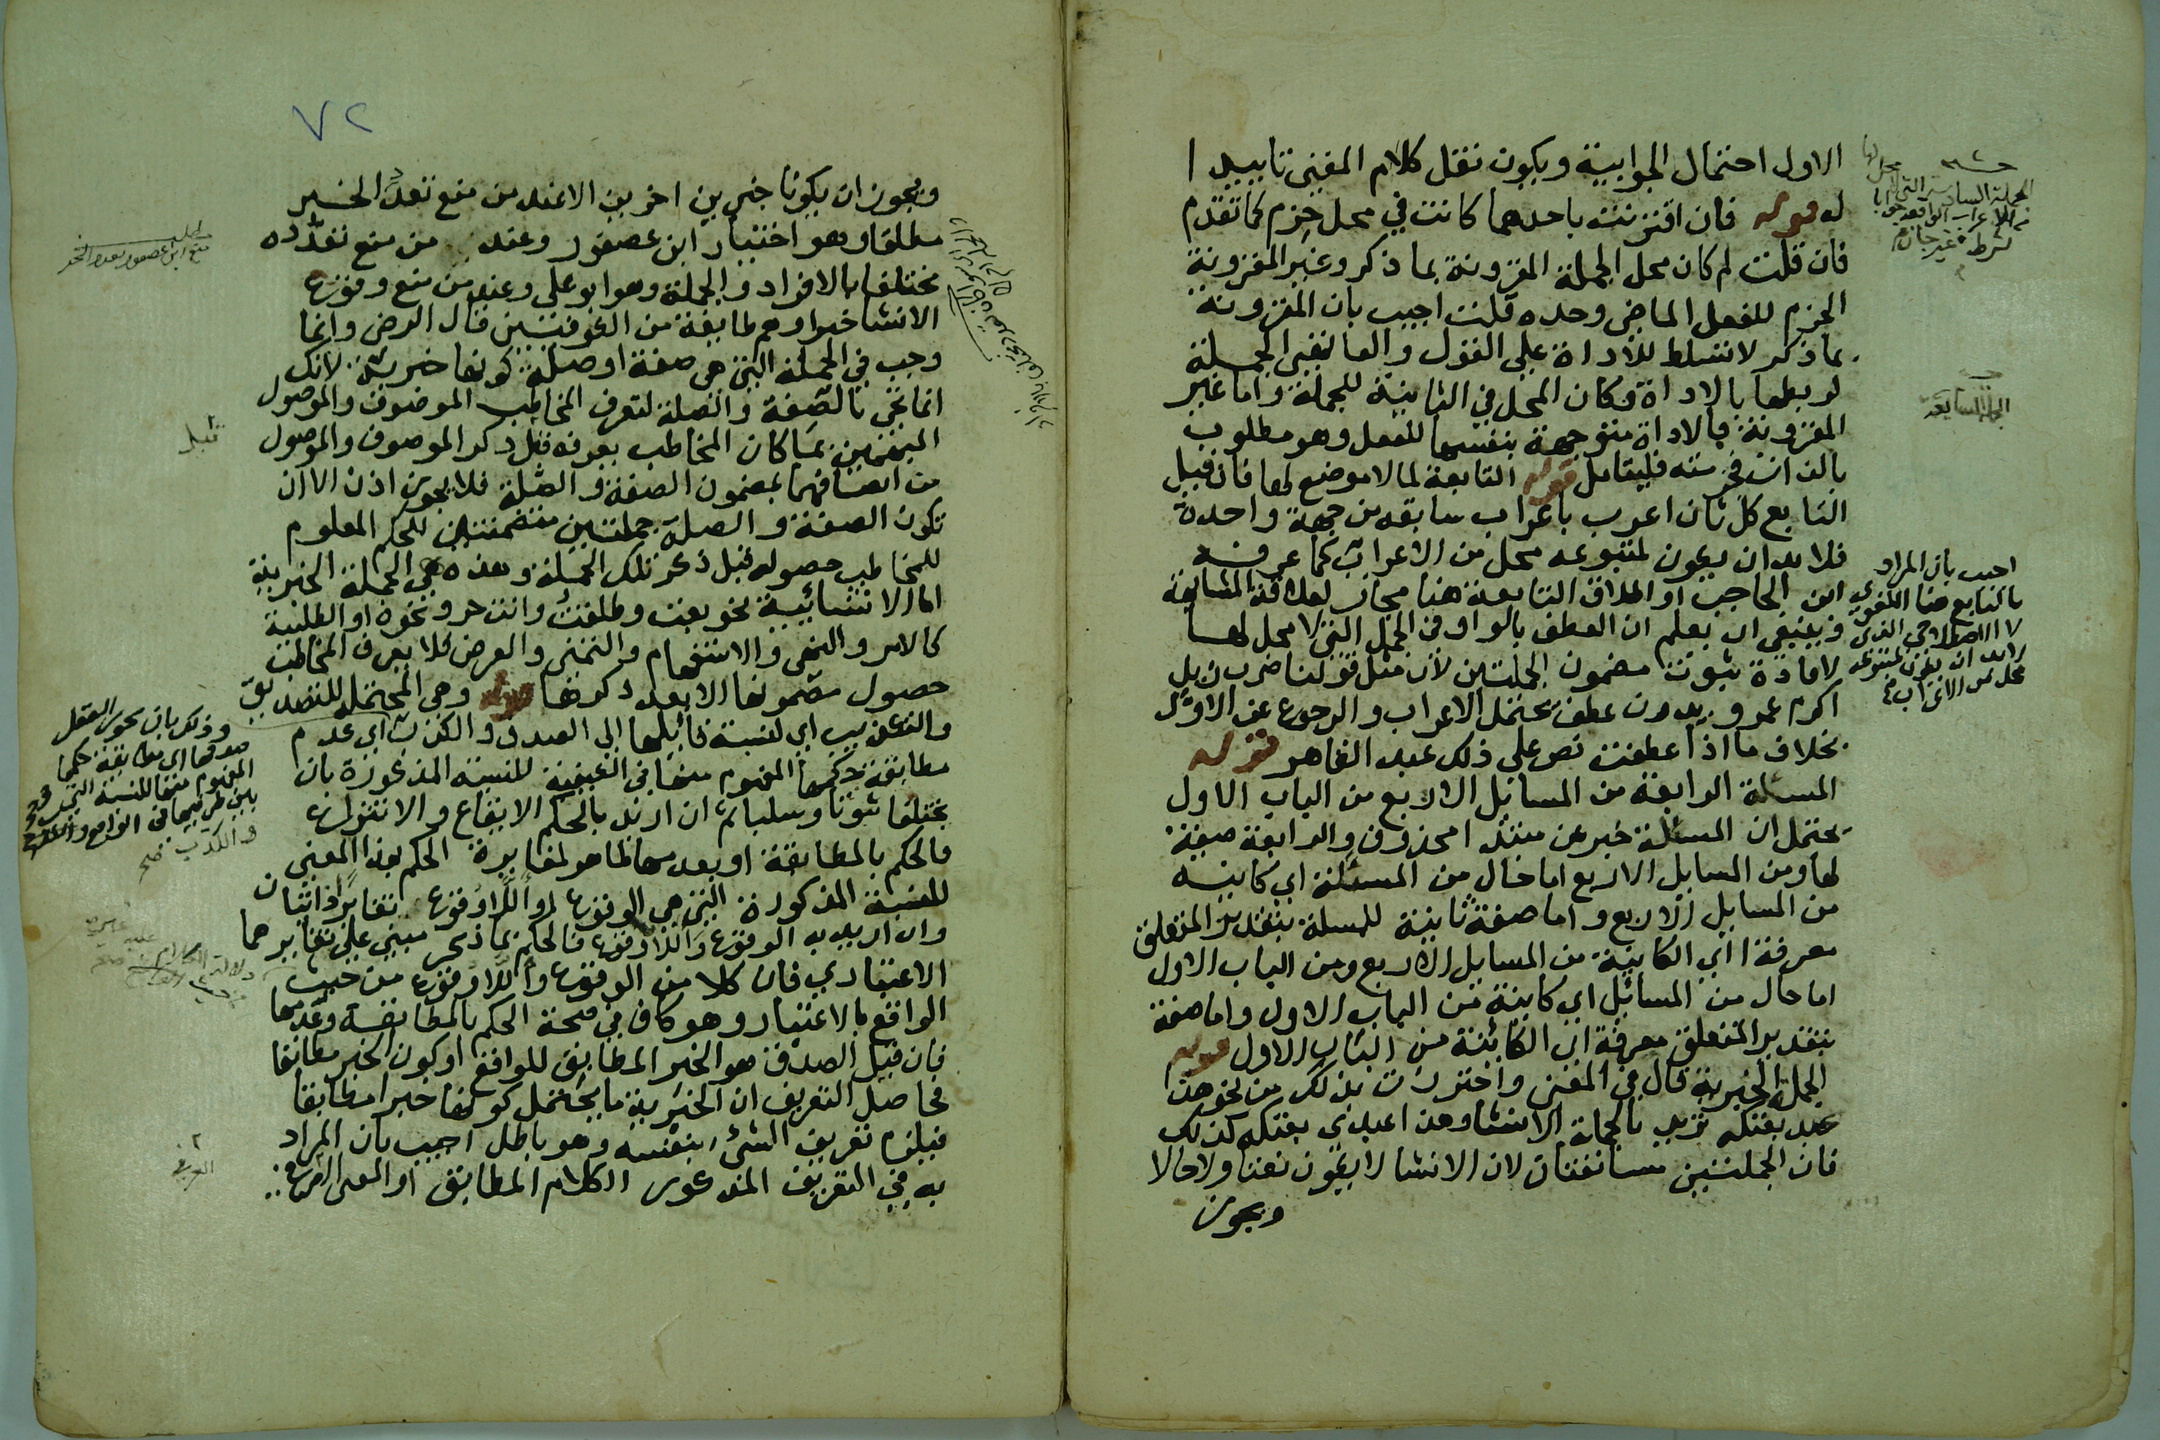 الاول احتمال الجوابية ويكون نقل كلام المغني تاييدا
له قوله فان اقترنت باحدهما كانت في محل جزم كما تقدم
فان قلت لم كان محل الجملة المقرونة بما ذكر وغير المقرونة
الجزم للفعل الماضي وحده قلت اجيب بان المقرونة
بما ذكر لا تسلط للاداة على القول والفا تفيى الجملة
لربطها بالاداة وكان المحل في الثانية للجملة واما غير
المقرونة فالاداة متوجهة بنفسها للفعل وهو مطلوب
بالذات فليتامل قوله التابعة لما لا موضع لها فان قيل
التابع كل ثان اعرب باعراب سابقه من جهة واحدة
فلا بد ان يكون لمتبوعه محل من الاعراب كما عرفه
ابن الحاجب او اطلاق التابعة هنا مجاز لعلاقة المشابهة
وينبغي ان يعلم ان العطف بالواو في الجمل التي لا محل لها
لافادة ثبوت مضمون الجملتين لان مثل قولنا ضرب زيد
اكرم عمرو بدون عطف يحتمل الاعراب والرجوع عن الاول
بخلاف ما اذا عطفت نص على ذلك عبد القاهر قوله
المسئلة الرابعة من المسايل الاربع من الباب الاول
يحتمل ان المسئلة خبر عن مبتدا محذوف والرابعة صفة
لها ومن المسايل الاربع اما حال من المسئلة اي كاينة
من المسايل الاربع واما صفة ثانية للمسلة بتقدير المتعلق
معرفة اي الكاينة من المسايل الاربع ومن الباب الاول
اما حال من المسائل اي كاينة من الباب الاول واما صفة
بتقدير المتعلق معرفة اي الكائنة من الباب الاول قوله
الجملة الخبرية قال في المغني واحترزت بذلك من نحو هذا
عبد بعتكه تريد بالجملة الانشا وهذا عبدي بعتكه كذلك
فان الجملتين مستانفتان لان الانشا لا يكون نعتا ولا حالا
ويجوز
الجملة السادسة التي لا محل لها
من الاعراب الواقعة جوابا
لشرط غير جازم
الجملة السابعة
اجيب بان المراد
بالتابع هنا اللغوي
لا الاصطلاحي الذي
لا بد ان يكون لمتبوعه
محل من الاعراب
٧٢
ويجوز ان يكونا خبرين اخرين الا عند من منع تعدد الخبر
مطلقا وهو اختيار ابن عصفور وعند من منع تعدده
مختلفا بالافراد والجملة وهو ابو علي وعند من منع وقوع
الانشا خبرا وهم طايفة من الكوفيين قال الرضي وانما
وجب في الجملة التي هي صفة او صلة كونها خبرية لانك
انما تجئ بالصفة والصلة لتعرف المخاطب الموصوف والموصول
المبهمين بما كان المخاطب يعرفه قبل ذكر الموصوف والموصول
من اتصافهما بمضمون الصفة والصلة فلا يجوز اذن الا ان
تكون الصفة والصلة جملتين متضمنتين للحكم المعلوم
للمخاطب حصوله قبل ذكر تلك الجملة وهذه هي الجملة الخبرية
اما الانشائية نحو بعت وطلقت وانت حر ونحوه او الطلبية
كالامر والنهي والاستفهام والتمني والعرض فلا يعرف المخاطب
حصول مضمونها الا بعد ذكرها قوله وهي المحتملة للتصديق
والتكذيب اي لنسبة قائلها الى الصدق والكذب اي عدم
مطابقة حكمها المفهوم منها في الكيفية للنسبة المذكورة بان
يختلفا ثبوتا وسلبا ثم ان اريد بالحكم الايقاع والانتزاع
فالحكم بالمطابقة او بعدمها ظاهر لمغايرة الحكم بهذا المعنى
للنسبة المذكورة التي هي الوقوع او اللاوقوع تغايرا ذاتيا
وان اريد به الوقوع واللاوقوع فالحكم بما ذكر مبني على تغايرهما
الاعتباري فان كلا من الوقوع واللاوقوع من حيث
الواقع بالاعتبار وهو كاف في صحة الحكم بالمطابقة وعدمها
فان قيل الصدق هو الخبر المطابق للواقع او كون الخبر مطابقا
فحاصل التعريف ان الخبرية ما يحتمل كونها خبرا مطابقا
فيلزم تعريف الشئ بنفسه وهو باطل اجيب بان المراد
به في التعريف المذكور الكلام المطابق او المعنى
مطلب
منع ابن عصفور تعدد الخبر
قبل
وذلك بان يجوز العقل
صدقها اي مطابقة حكمها
المفهوم منها للنسبة التي
بين طرفيها في الواقع
والكذب صح